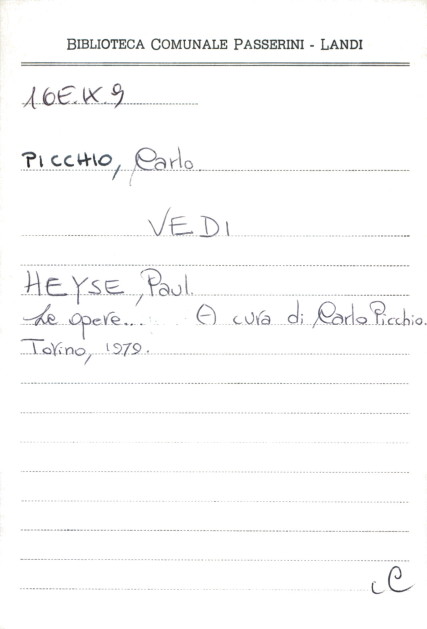 BIBLIOTECA COMUNALE PASSERINI - LANDI
16E.IX.9
PICCHIO, Carlo.
VEDI
HEYSE, Paul.
Le opere... A cura di Carlo Picchio.
Torino, 1979.
C